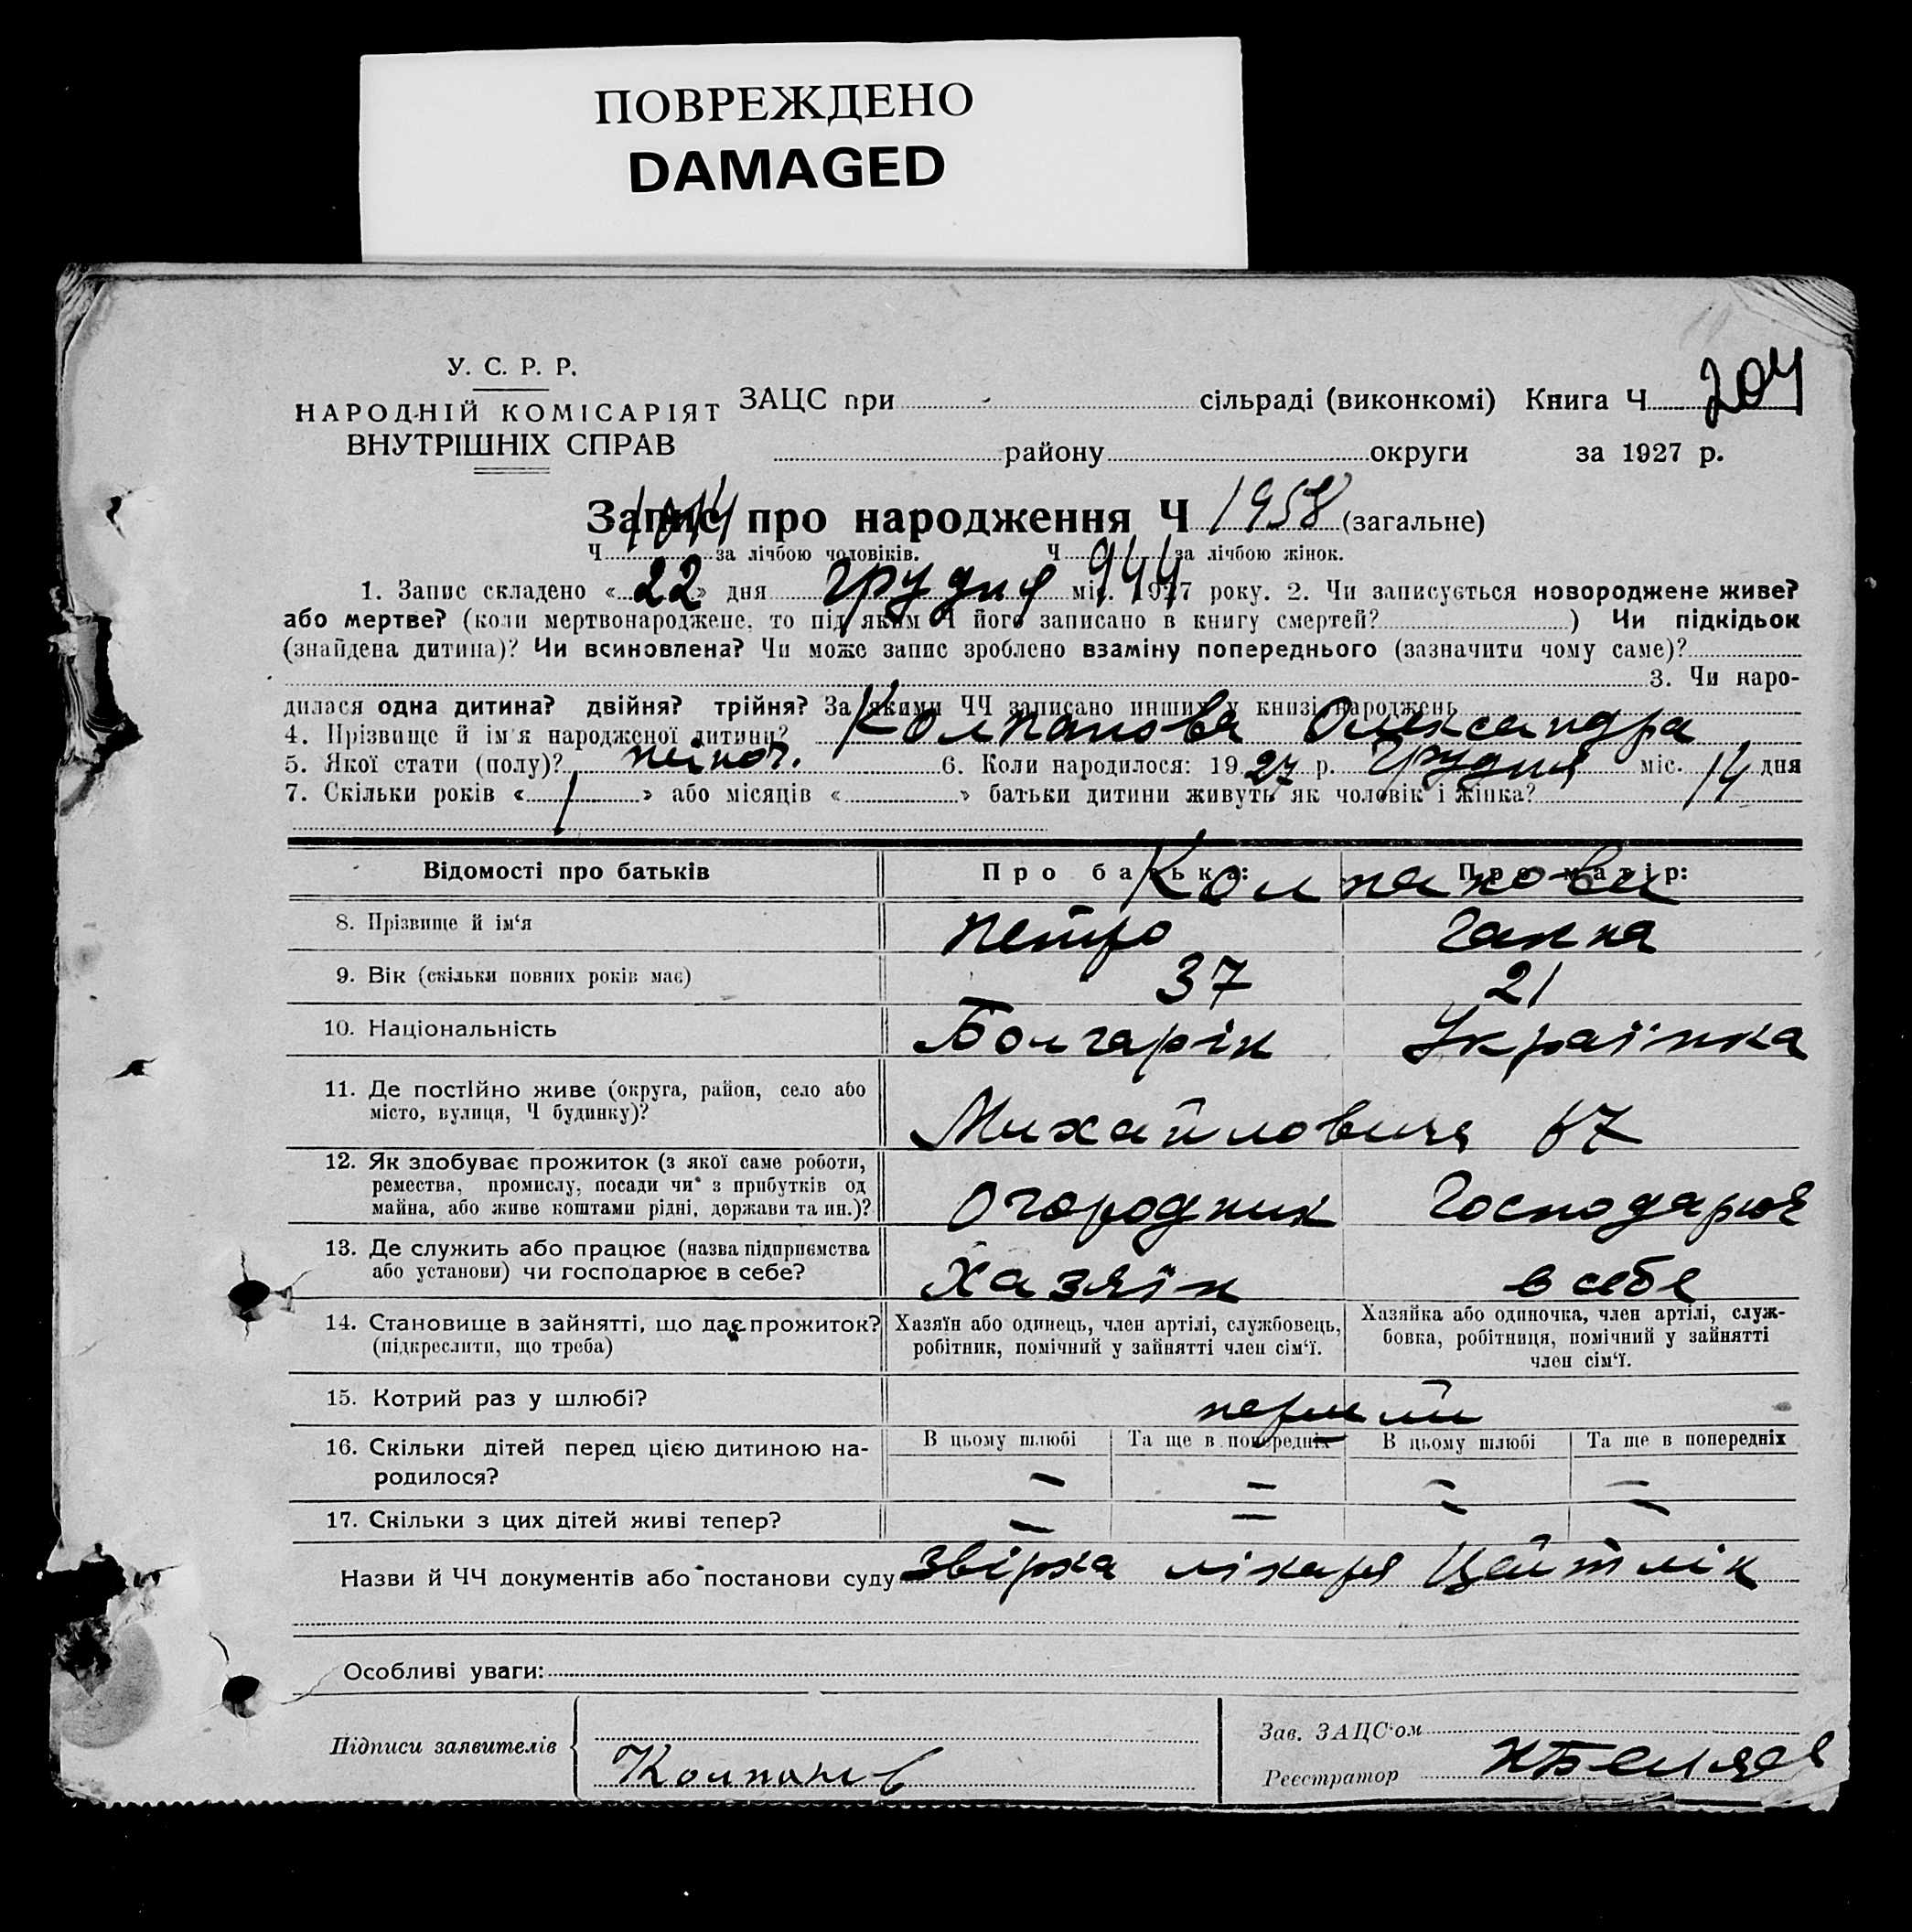 ПОВРЕЖДЕНО
DAMAGED
У. С. Р. Р.
НАРОДНІЙ КОМІСАРІЯТ
ВНУТРІШНІХ СПРАВ
ЗАЦС при сільраді (виконкомі) Книга Ч 204
району округи за 1927 р.
Запис про народження Ч 1958 (загальне)
Ч 1014 за лічбою чоловіків. Ч 944 за лічбою жінок.
1. Запис складено «22» дня грудня міс. 1927 року. 2. Чи записується новороджене живе?
або мертве? (коли мертвонароджене, то під яким Ч його записано в книгу смертей? ) Чи підкідьок
(знайдена дитина)? Чи всиновлена? Чи може запис зроблено взаміну попереднього (зазначити чому саме)?
3. Чи наро-
дилася одна дитина? двійня? трійня? За якими ЧЧ записано инших у книзі народжень
4. Прізвище й ім'я народженої дитини? Колпакова Олександра
5. Якої стати (полу)? жіноч. 6. Коли народилося: 1927 р. Грудня міс. 14 дня
7. Скільки років «1» або місяців « » батьки дитини живуть як чоловік і жінка?
Відомості про батьків Про батька: Про матір:
Колпакови
8. Прізвище й ім'я Петро Ганна
9. Вік (скільки повних років має) 37 21
10. Національність Болгарін Українка
11. Де постійно живе (округа, район, село або
місто, вулиця, Ч будинку)?
Михайловича 67
12. Як здобуває прожиток (з якої саме роботи,
ремества, промислу, посади чи з прибутків од
майна, або живе коштами рідні, держави та ин.)?
Огородник Господарює
13. Де служить або працює (назва підприємства
або установи) чи господарює в себе?
Хазяїн в себе
14. Становище в зайнятті, що дає прожиток?
(підкреслити, що треба)
Хазяїн або одинець, член артілі, службовець,
робітник, помічний у зайнятті член сім'ї.
Хазяйка або одиночка, член артілі, служ-
бовка, робітниця, помічний у зайнятті
член сім'ї.
15. Котрий раз у шлюбі? перший
16. Скільки дітей перед цією дитиною на-
родилося?
В цьому шлюбі Та ще в попередніх В цьому шлюбі Та ще в попередніх
– – – –
17. Скільки з цих дітей живі тепер? – – – –
Назви й ЧЧ документів або постанови суду звірка лікаря Цейтлін
Особливі уваги:
Підписи заявителів
Колпаков
Зав. ЗАЦС'ом
Реєстратор